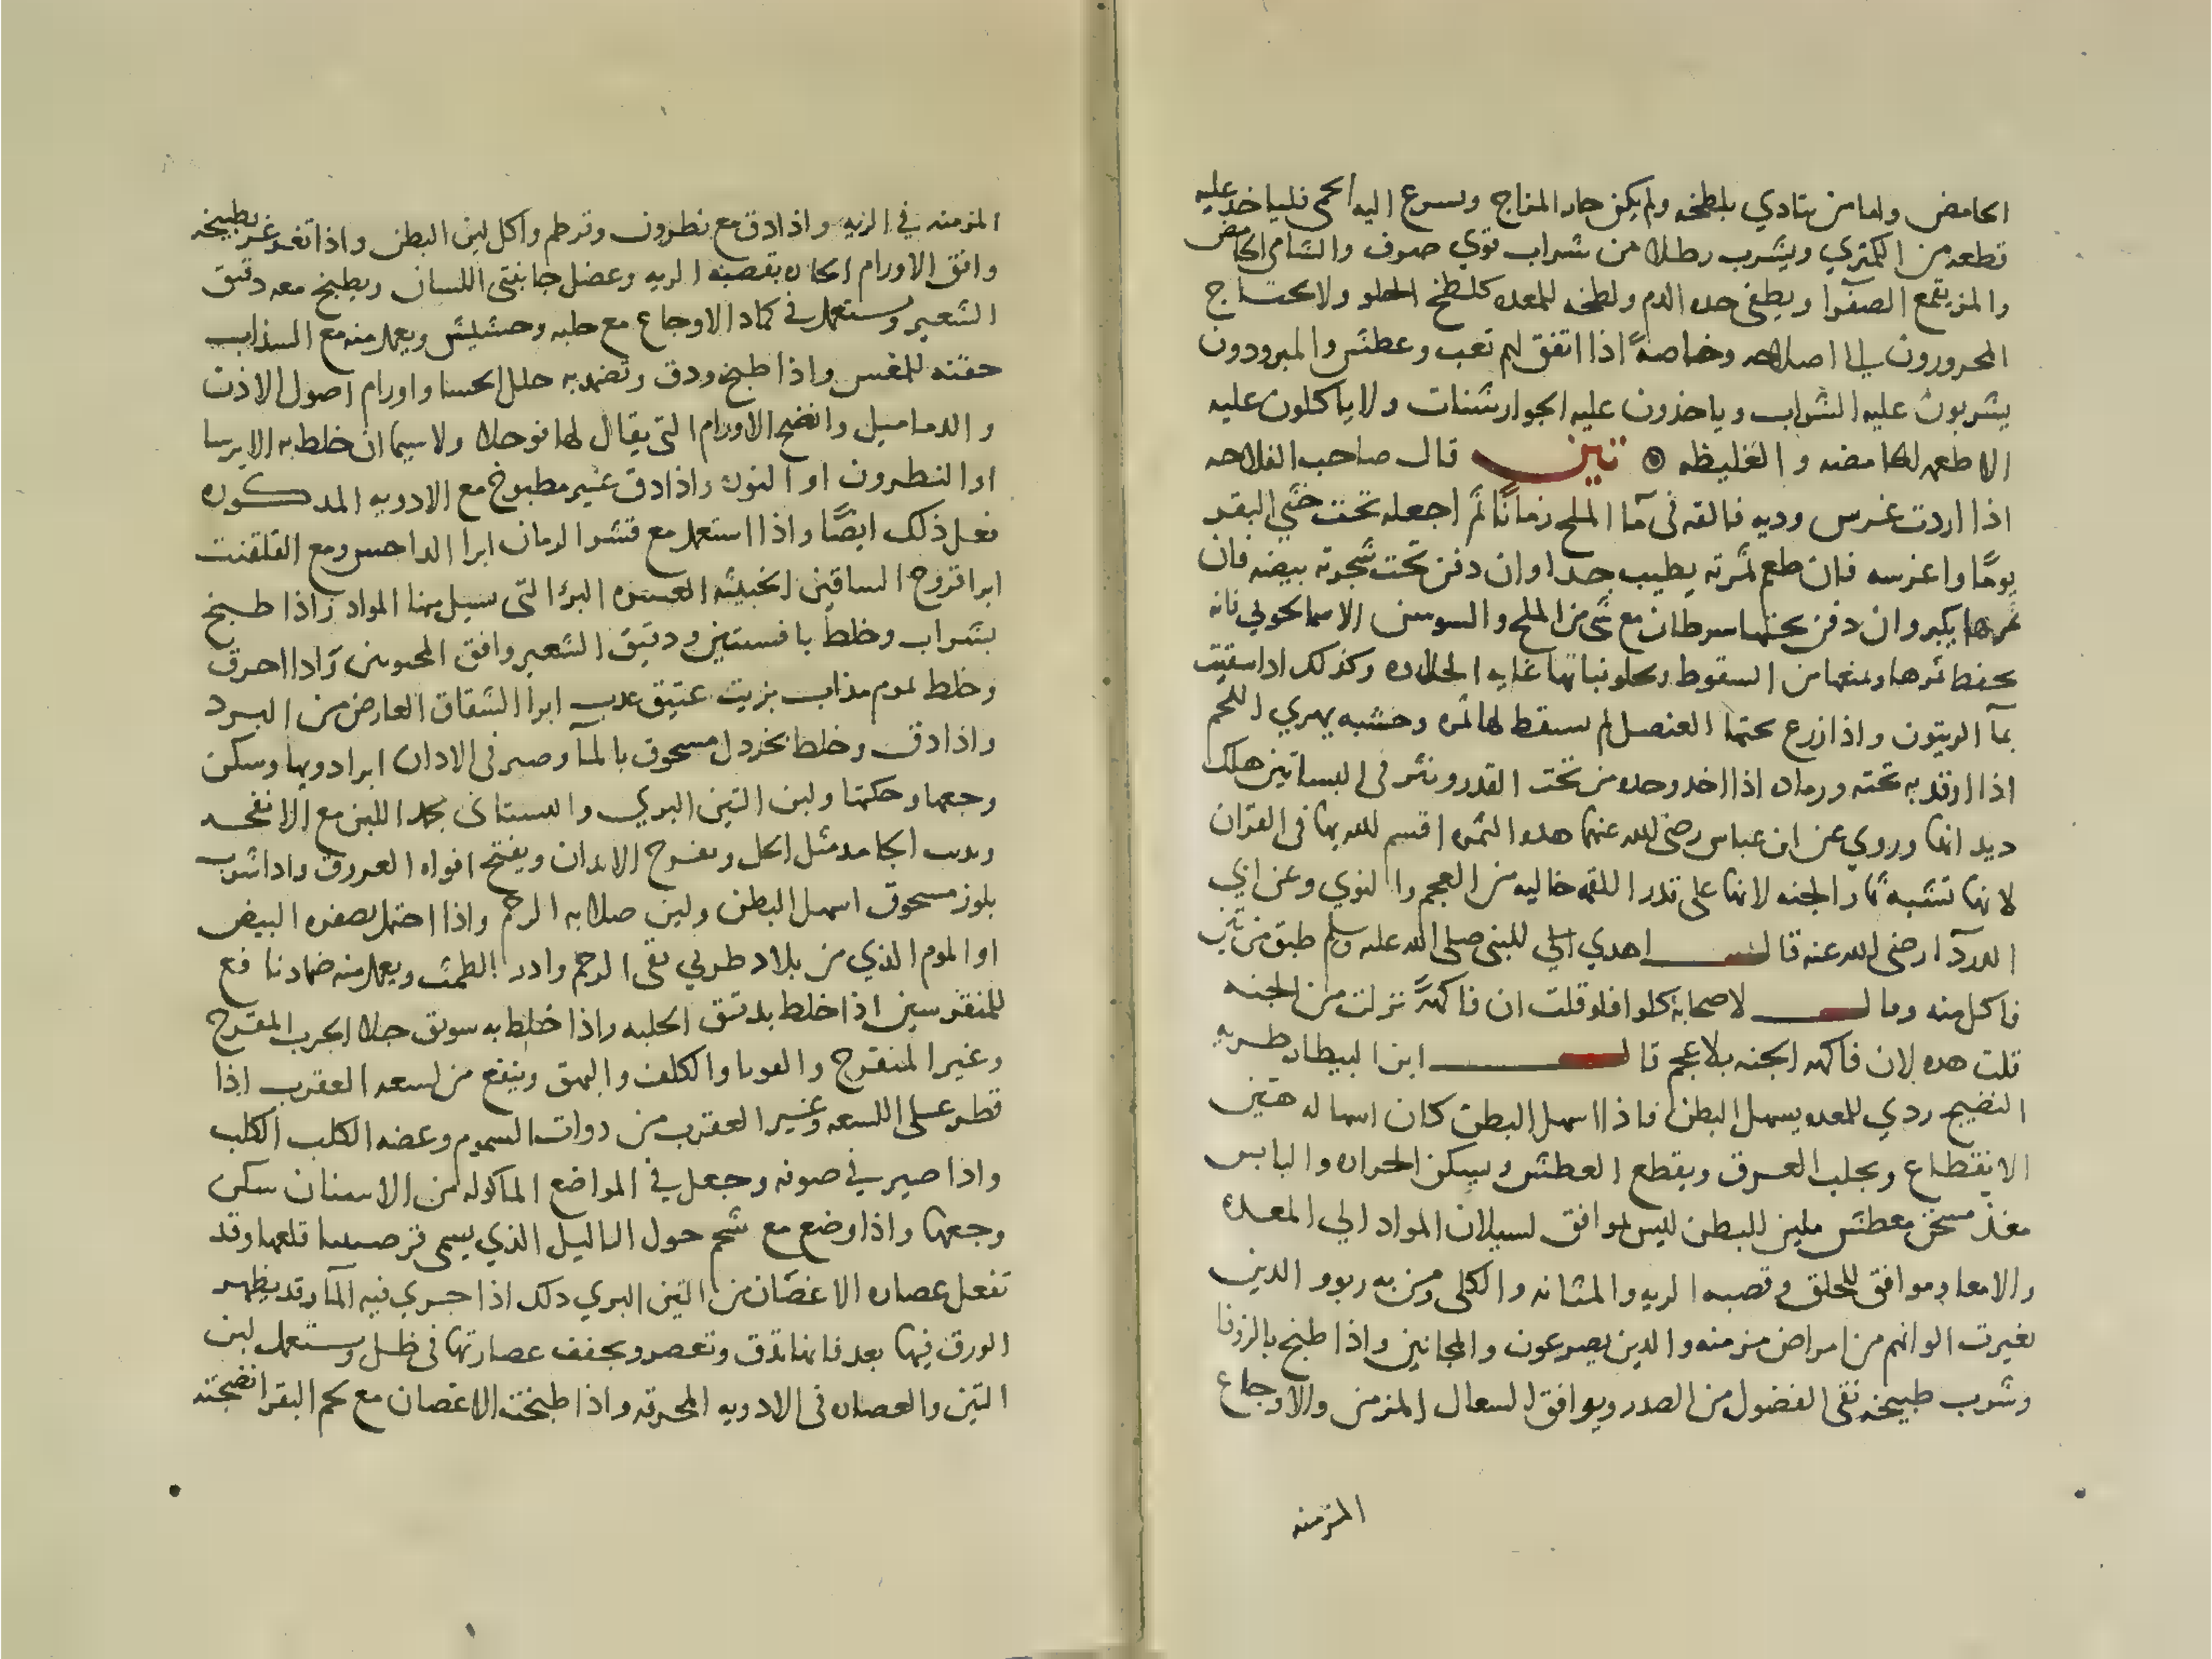 الحامض واما من يتادي بلطخه ولم يكن حار المزاج ويسرع اليه الحمى فلياخذ عليه
قطعه من الكمثري ويشرب رطلا من شراب قوي صرف والشامي الحامض
والمز يقمع الصفرا ويطفي حده الدم ولطخه للمعده كلطخ الحلو ولا يحتاج
المحرورون الي اصلاحه وخاصة اذا اتفق لهم تعب وعطش والمبرودون
يشربون عليه الشراب وياخذون عليه الجوارشنات ولا ياكلون عليه
الاطعمه الحامضه والغليظه تين قال صاحب الفلاحه
اذا اردت غرس وديه فالقه في مآ الملح زمانًا ثم اجعله تحت خثي البقر
يومًا واغرسه فان طعم ثمرته يطيب جدا وان دفن تحت شجرته بيضه فان
ثمرها يكبر وان دفن تحتها سرطان مع شي من الملح والسوسن الاسمانجوني فانه
يحفظ ثمرها ويمنعها من السقوط ويحلو نباتها غايه الحلاوه وكذلك اذا سقيت
بمآ الزيتون واذا زرع تحتها العنصل لم يسقط لها ثمره وخشبه يهري اللحم
اذا اوقد به تحته ورماده اذا اخذ وحده من تحت القدر ونثر في البساتين هلك
ديدانها وروي عن ابن عباس رضي الله عنهما هذه الثمره اقسم الله بها في القران
لانها تشبه ثمار الجنه لانها على قدر اللقمه خاليه من العجم والنوي وعن ابي
الدردآ رضي الله عنه قال اهدي الي النبي صلى الله عليه وسلم طبق من تين
فاكل منه وقال لاصحابه كلوا فلو قلت ان فاكهةً نزلت من الجنه
قلت هذه لان فاكهه الجنه بلا عجم قال ابن البيطار طريه
النضيج ردي للمعده يسهل البطن فاذا اسهل البطن كان اسهاله هين
الانقطاع ويجلب العرق ويقطع العطش ويسكن الحراره واليابس
مغذ مسخن معطش ملين للبطن ليس بموافق لسيلان المواد الي المعده
والامعا وموافق للحلق وقصبه الريه والمثانه والكلى ومن به ربو والذين
تغيرت الوانهم من امراض مزمنه والذين يصرعون والمجانين واذا طبخ بالزوفا
وشرب طبيخه نقى الفضول من الصدر ويوافق السعال المزمن والاوجاع
المزمنه
المزمنه في الريه واذا دق مع نطرون وقرطم واكل لين البطن واذا تغرغر بطبيخه
وافق الاورام الحاره بقصبه الريه وعضل جانبتي اللسان ويطبخ معه دقيق
الشعير ويستعمل في كماد الاوجاع مع حلبه وحشيش ويعمل منه مع السذاب
حقنه للمغس واذا طبخ ودق وتضمد به حلل الحسا واورام اصول الاذن
والدماميل وانضج الاورام التي يقال لها فوحلا ولا سيما ان خلط به الايرسا
او النطرون او النوره واذا دق غير مطبوخ مع الادويه المذكوره
فعل ذلك ايضًا واذا استعمل مع قشر الرمان ابرا الداحس ومع القلقنت
ابرا قروح الساقين الخبيثه العسره البرؤ التي تسيل منها المواد واذا طبخ
بشراب وخلط بافسنتين ودقيق الشعير وافق المحبوسن واذا احرق
وخلط بموم مذاب بزيت عتيق عدب ابرا الشقاق العارض من البرد
واذا دق وخلط بخردل مسحوق بالمآ وصير في الاذان ابرا دويها وسكن
وجعها وحكتها ولبن التين البري والبستاني يجمد اللبن مع الانفحه
ويذيب الجامد مثل الخل ويقرح الابدان ويفتح افواه العروق واذا شرب
بلوز مسحوق اسهل البطن ولين صلابه الرحم واذا احتمل بصفره البيض
او الموم الذي من بلاد طربي نقى الرحم وادر الطمث ويعمل منه ضمادنا فع
للمنقرسين اذا خلط بدقيق الحلبه واذا خلط به سويق جلا الجرب المقرح
وغير المتقرح والقوبا والكلف والبهق وينفع من لسعه العقرب اذا
قطر على اللسعه وغير العقرب من ذوات السموم وعضه الكلب الكلب
واذا صير في صوفه وجعل في المواضع الماكوله من الاسنان سكن
وجعها واذا وضع مع شحم حول الثاليل الذي يسمى قلعها وقد
تفعل عصاره الاغصان من التين البري ذلك اذا جري فيه المآ وقد يظهر
الورق فيها بعد فانها تدق وتعصر ويجفف عصارتها في ظل ويستعمل لبن
التين والعصاره في الادويه المحرقه واذا طبخت الاغصان مع لحم البقر انضجته